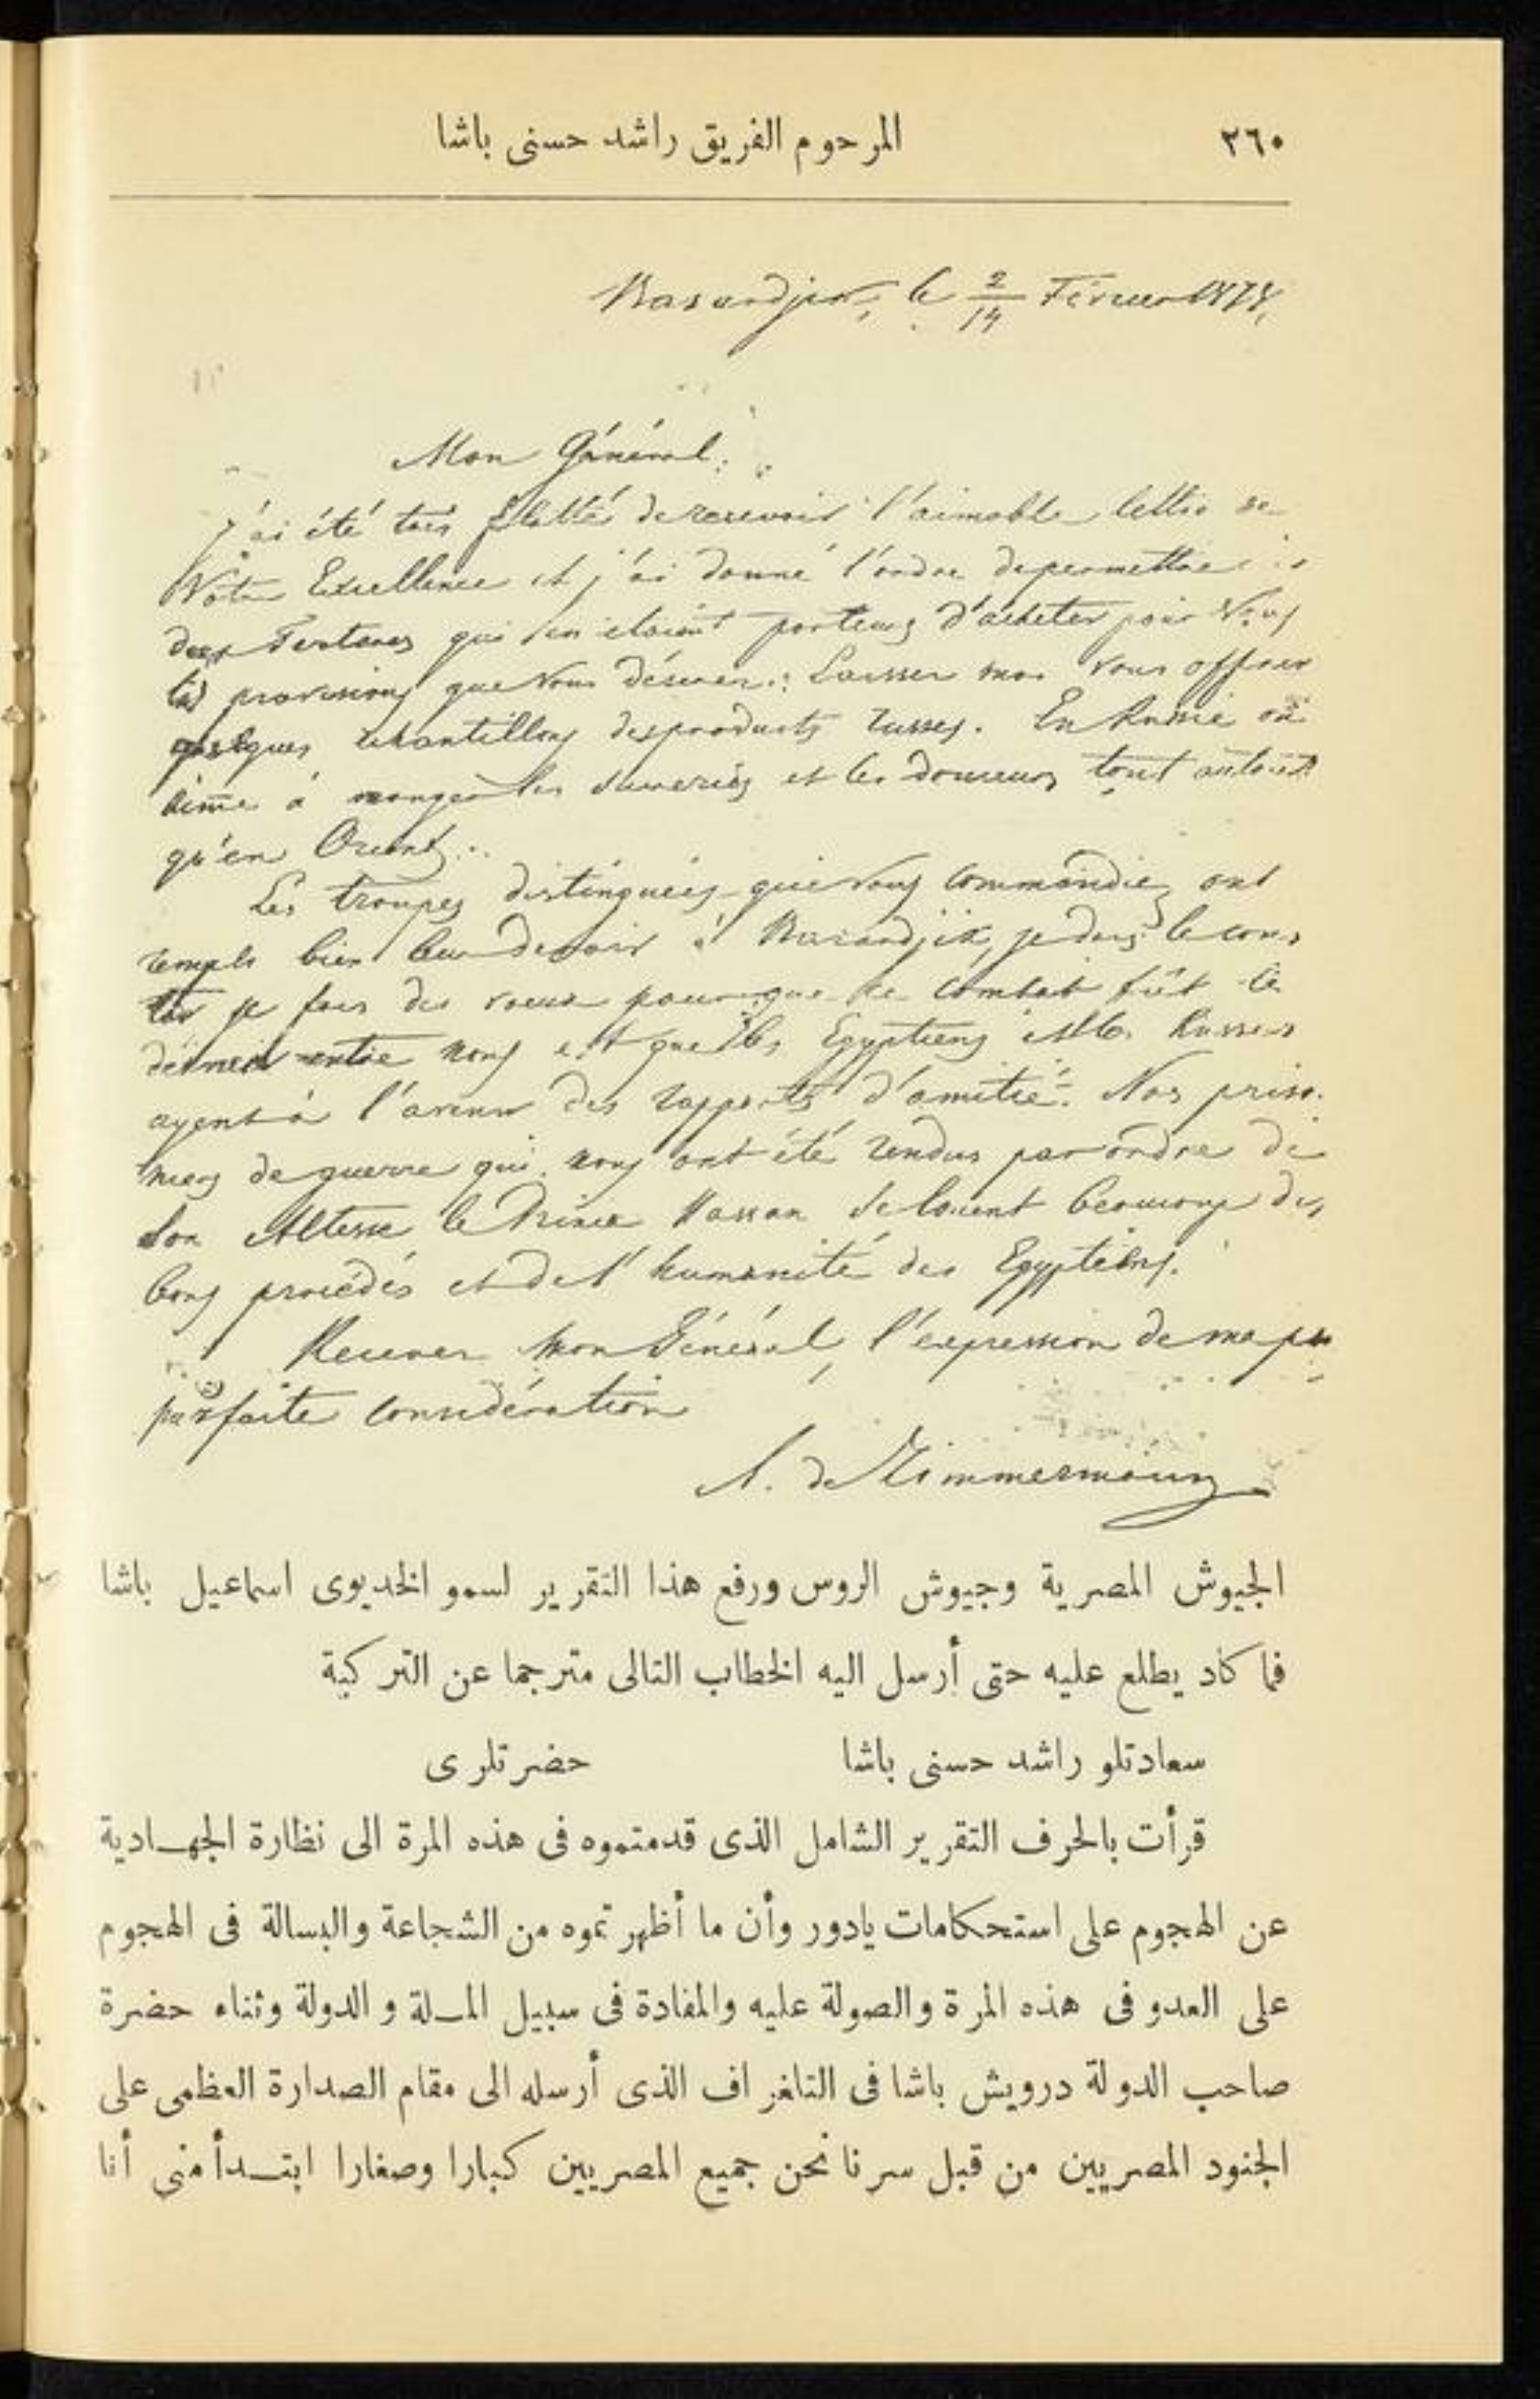 ٢٦٠ المرحوم الفريق راشد حسنى باشا
Basardjik, le 2/14 Février 1878,
Mon Général.
J'ai été très flatté de recevoir l'aimable lettre de
Votre Excellence et j'ai donné l'ordre de permettre
qui en étaient porteurs d'acheter pour Vous
les provisions que Vous désirez. Laissez moi Vous offrir
quelques échantillons des produits russes. En Russie on
aime à manger les sucreries et les douceurs tout autant
qu'en Orient.
Les troupes distinguées que Vous commandiez ont
rempli bien leur devoir à Basardjik, je dois le cons
tater je fais des voeux pour que ce combat fût le
dernier entre nous et que les Egyptiens et les Russes
ayent à l'avenir des rapports d'amitié. Nos prison
niers de guerre qui nous ont été rendus par ordre de
Son Altesse le Prince Hassan se louent beaucoup des
bons procédés et de l'humanité des Egyptiens.
Recevez Mon Général, l'expression de ma
parfaite considération
A. de Zimmermann
الجيوش المصرية وجيوش الروس ورفع هذا التقرير لسمو الخديوى اسماعيل باشا
فما كاد يطلع عليه حتى أرسل اليه الخطاب التالى مترجما عن التركية
سعادتلو راشد حسنى باشا حضرتلرى
قرأت بالحرف التقرير الشامل الذى قدمتموه فى هذه المرة الى نظارة الجهادية
عن الهجوم على استحكامات يادور وأن ما أظهرتموه من الشجاعة والبسالة فى الهجوم
على العدو فى هذه المرة والصولة عليه والمفادة فى سبيل الملة والدولة وثناء حضرة
صاحب الدولة درويش باشا فى التلغراف الذى أرسله الى مقام الصدارة العظمى على
الجنود المصريين من قبل سرنا نحن جميع المصريين كبارا وصغارا ابتدأ منى أنا